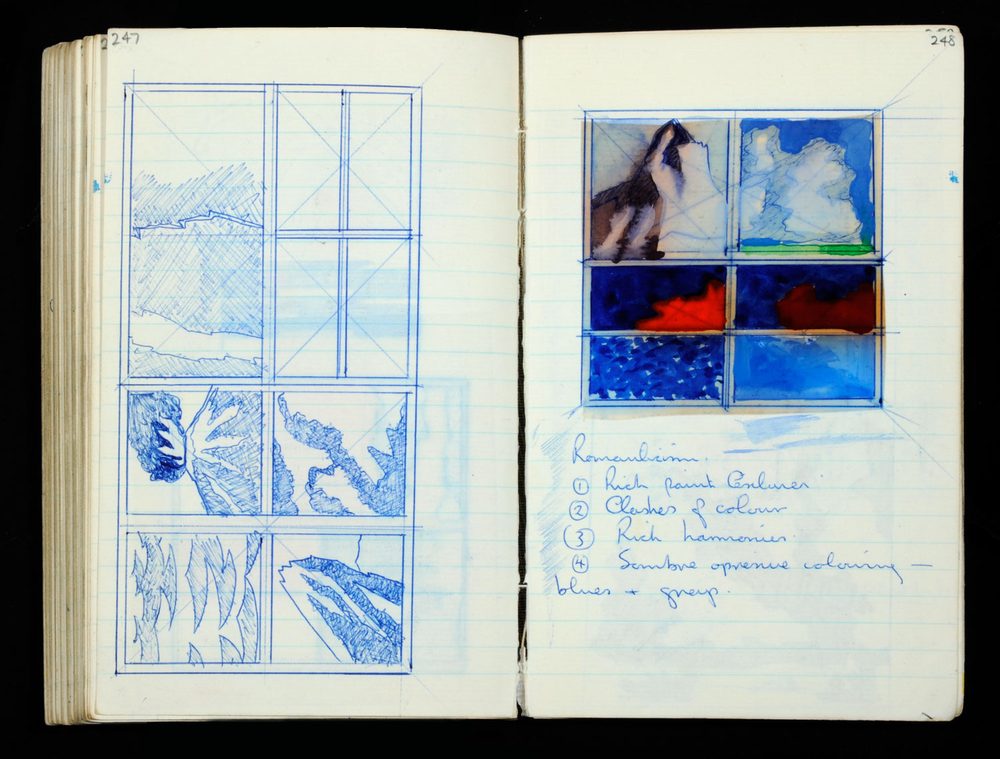 247
248
Romanticism.
① Rich paint textures
② Clashes of colour
③ Rich harmonies.
④ Sombre opresive colouring —
blues + greys.